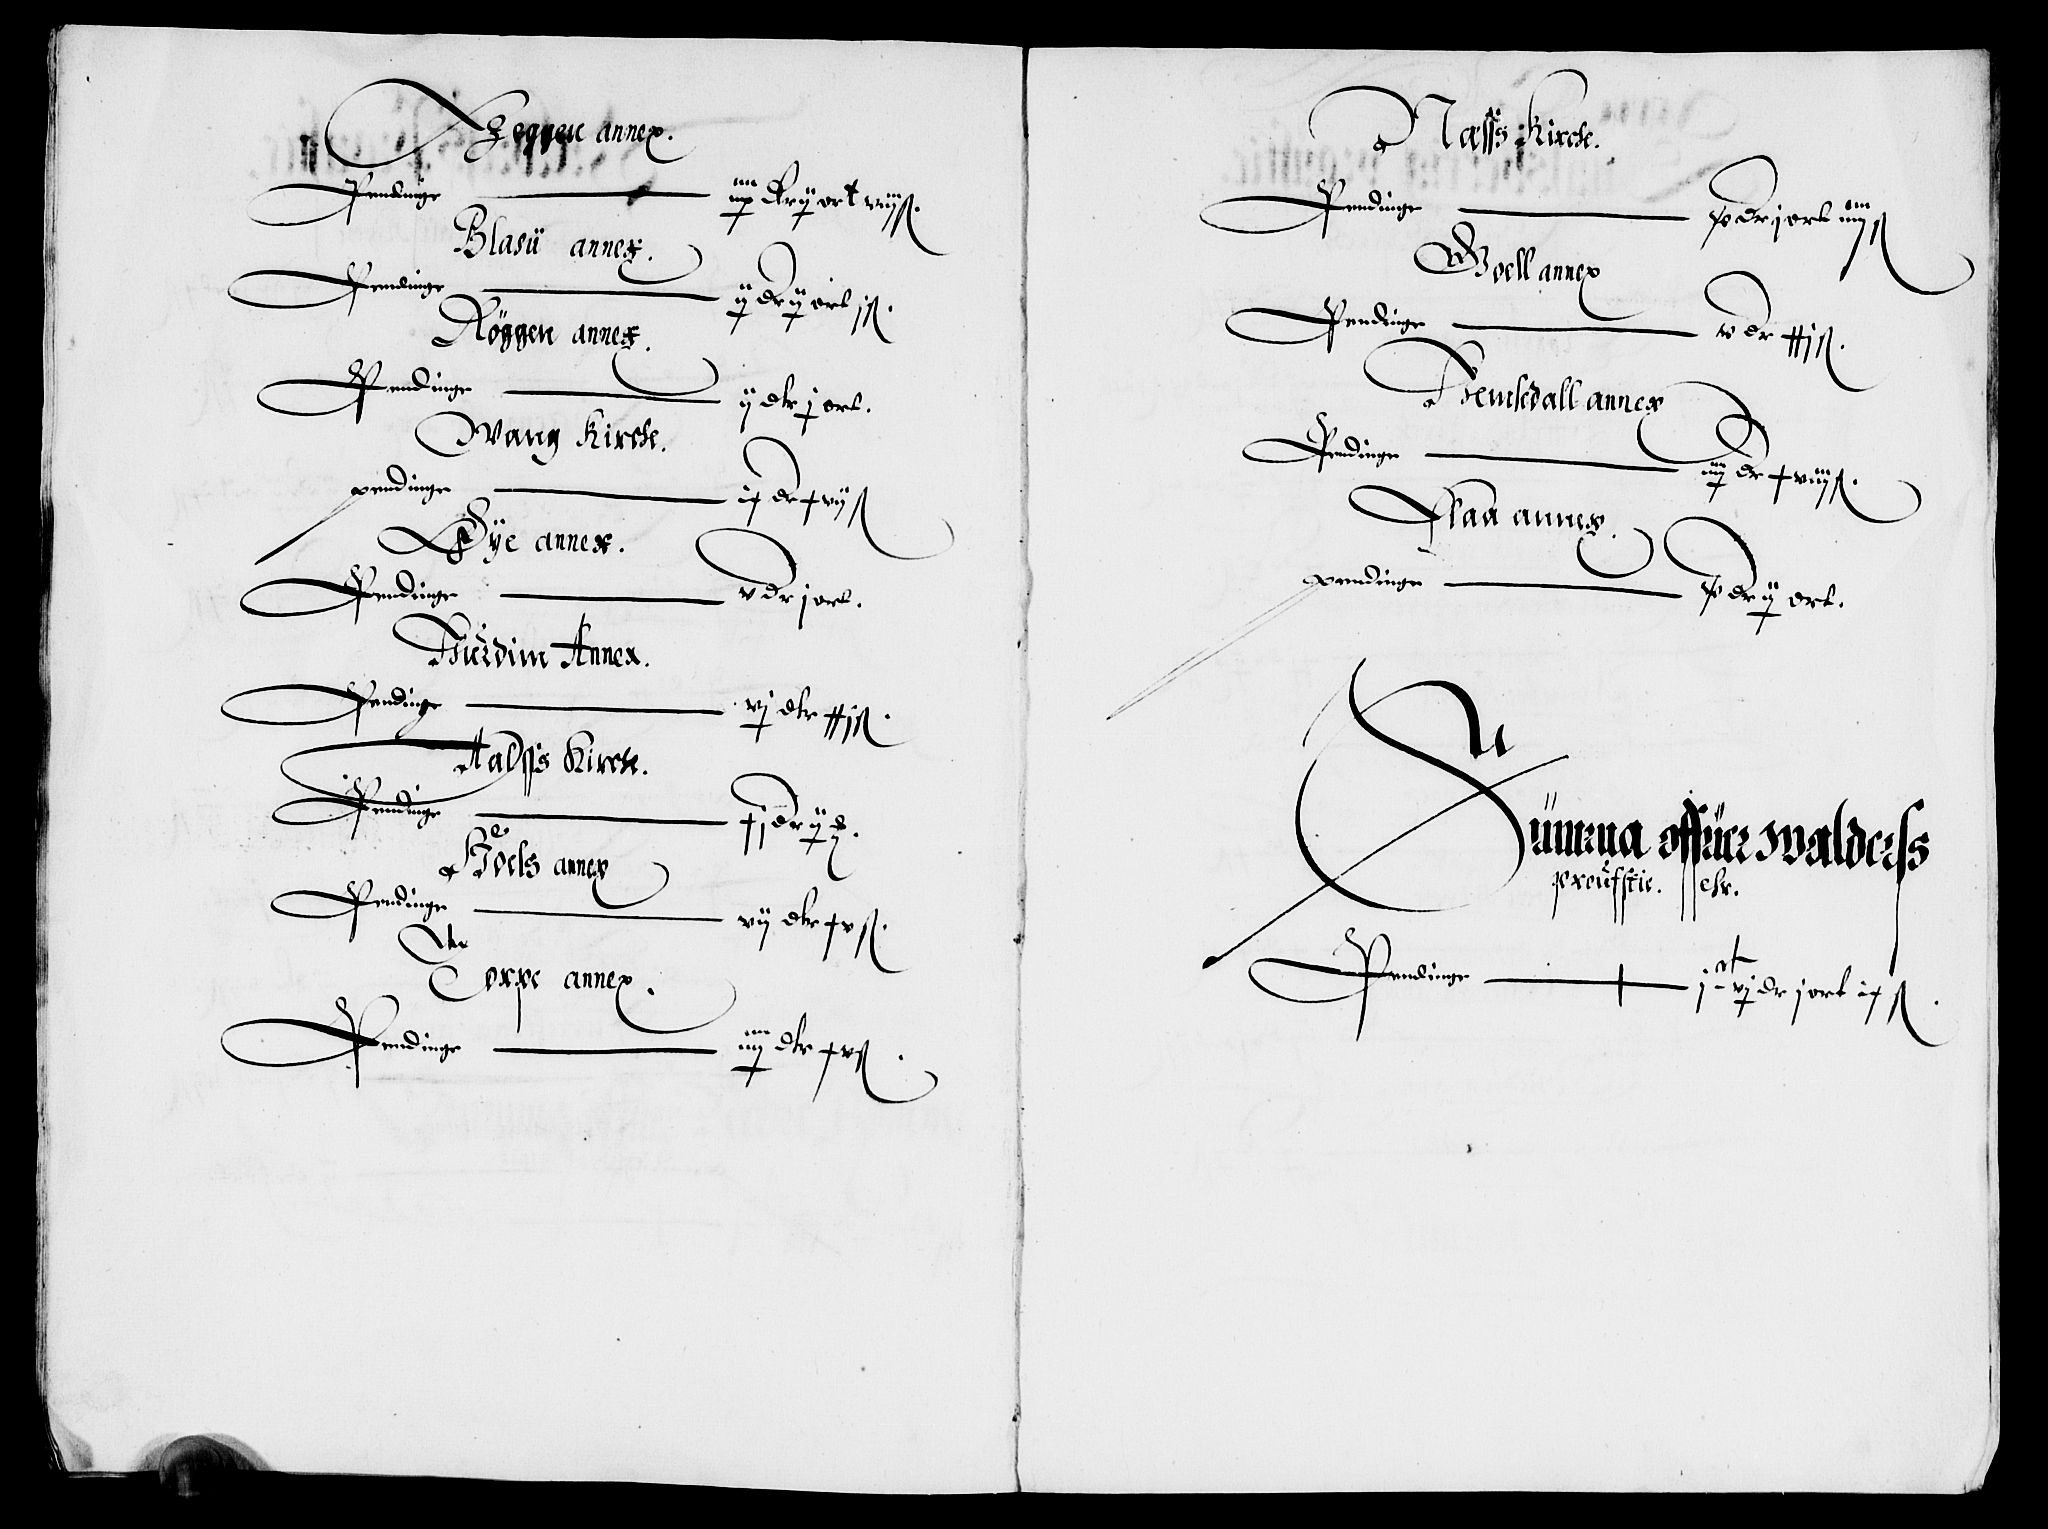 Heggen annex.
Pendinge iiij dr ij ort viij ß.
Blasii annex.
Pendinge ij dr ij ort j ß.
Röggen annex.
Pendinge ij dlr j ort.
Wang Kircke.
pendinge dr vij ß
Öye annex.
Pendinge v dr j ort.
Hurdim Annex.
Pendinge vj dlr ß.
Aalss Kircke.
Pendinge dr ij
Hoels annex
Pendinge vij dlr ß.
Torpe annex.
Pendinge iiij dlr ß.
Næss Kircke.
Pendinge dr j ort iiij ß
Goell annex
Pendinge v dr ß.
Hemsedall annex
Pendinge iiij dr viij ß.
Flaa annex.
pendinge dr ij ort.
Summa offuer Walderss
proufstie.
Pendinge j c vj dr j ort ß.